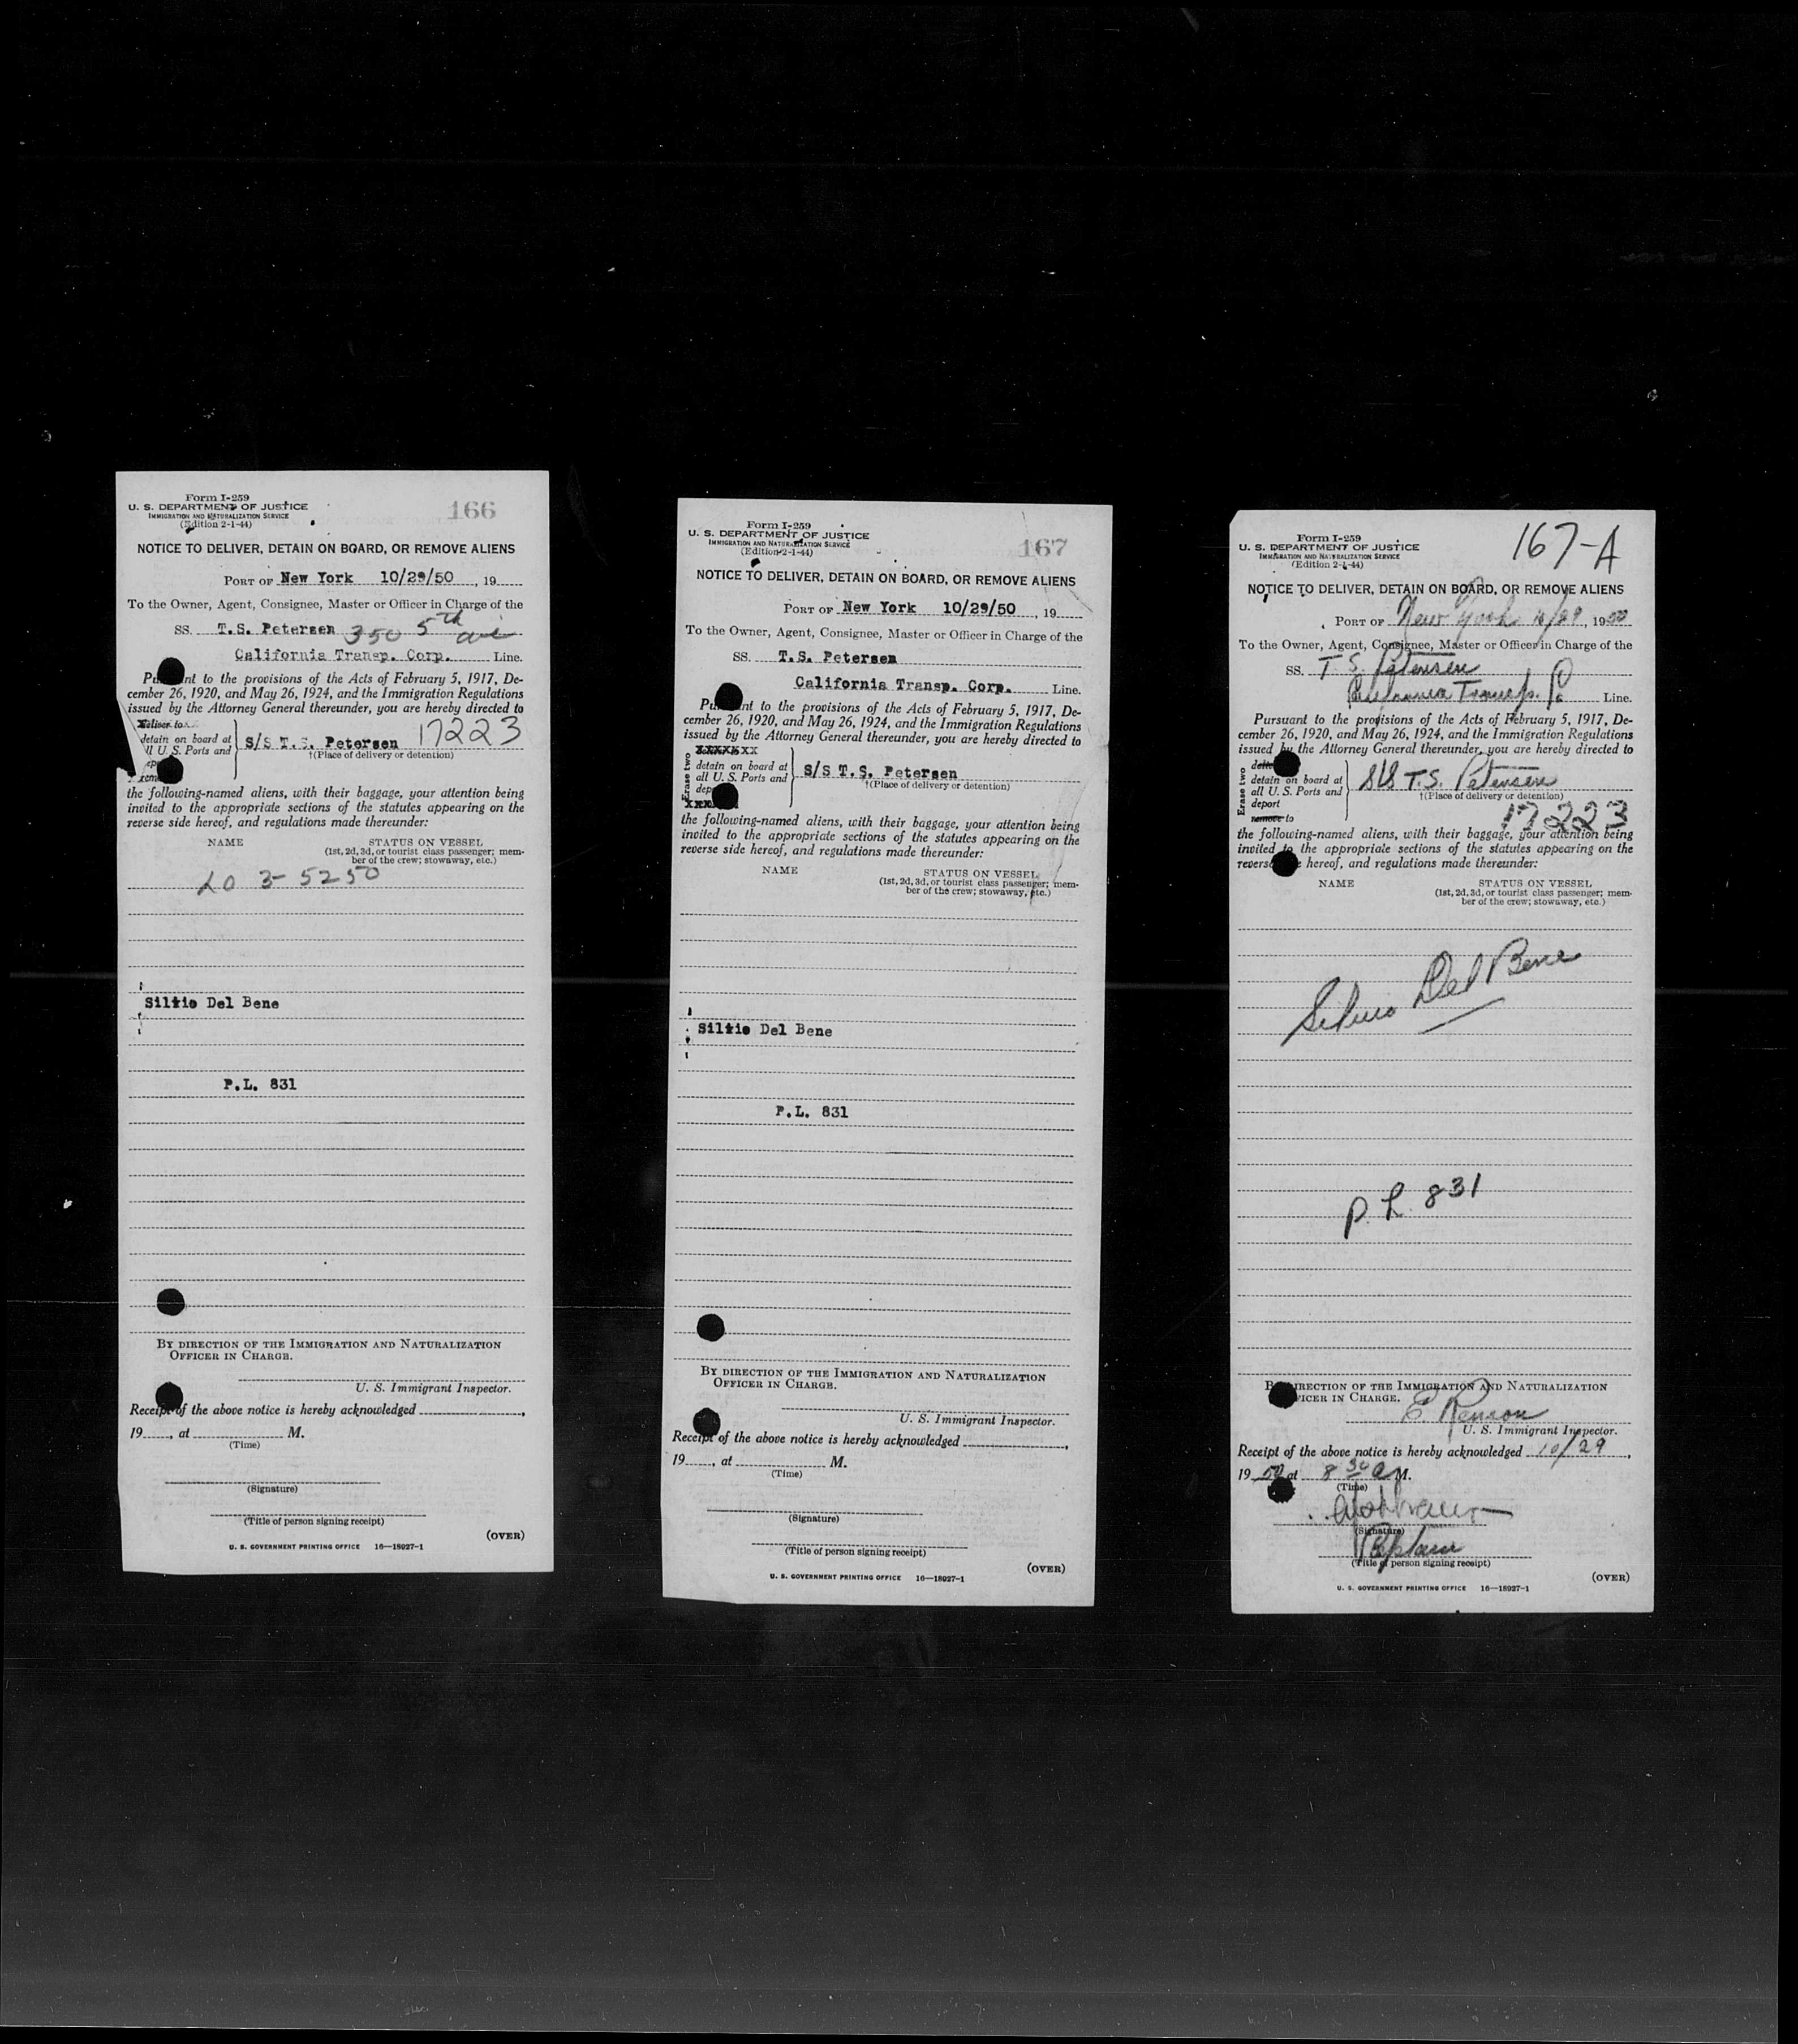 Form I-259
U. S. DEPARTMENT OF JUSTICE
IMMIGRATION AND NATURALIZATION SERVICE
(Edition 2-1-44)
166
NOTICE TO DELIVER, DETAIN ON BOARD, OR REMOVE ALIENS
PORT OF New York 10/29/50, 19
To the Owner, Agent, Consignee, Master or Officer in Charge of the
SS. T.S. Petersen 350 5th ave
California Transp. Corp. Line.
Pu nt to the provisions of the Acts of February 5, 1917, De-
cember 26, 1920, and May 26, 1924, and the Immigration Regulations
issued by the Attorney General thereunder, you are hereby directed to
deliver to
detain on board at
all U. S. Ports and
S/S T.S. Petersen 17223
†(Place of delivery or detention)
the following-named aliens, with their baggage, your attention being
invited to the appropriate sections of the statutes appearing on the
reverse side hereof, and regulations made thereunder:
NAME STATUS ON VESSEL
(1st, 2d, 3d, or tourist class passenger; mem-
ber of the crew; stowaway, etc.)
LO 3-5250
Siltio Del Bene
P.L. 831
BY DIRECTION OF THE IMMIGRATION AND NATURALIZATION
OFFICER IN CHARGE.
U. S. Immigrant Inspector.
Receipt of the above notice is hereby acknowledged
19, at M.
(Time)
(Signature)
(Title of person signing receipt)
(OVER)
U. S. GOVERNMENT PRINTING OFFICE 16—18927-1
Form I-259
U. S. DEPARTMENT OF JUSTICE
IMMIGRATION AND NATURALIZATION SERVICE
(Edition 2-1-44)
167
NOTICE TO DELIVER, DETAIN ON BOARD, OR REMOVE ALIENS
PORT OF New York 10/29/50, 19
To the Owner, Agent, Consignee, Master or Officer in Charge of the
SS. T.S. Petersen
California Transp. Corp. Line.
Pu nt to the provisions of the Acts of February 5, 1917, De-
cember 26, 1920, and May 26, 1924, and the Immigration Regulations
issued by the Attorney General thereunder, you are hereby directed to
Erase two
XXXXXXX
detain on board at
all U. S. Ports and
dep
XXX
S/S T.S. Petersen
†(Place of delivery or detention)
the following-named aliens, with their baggage, your attention being
invited to the appropriate sections of the statutes appearing on the
reverse side hereof, and regulations made thereunder:
NAME STATUS ON VESSEL
(1st, 2d, 3d, or tourist class passenger; mem-
ber of the crew; stowaway, etc.)
Siltio Del Bene
P.L. 831
BY DIRECTION OF THE IMMIGRATION AND NATURALIZATION
OFFICER IN CHARGE.
U. S. Immigrant Inspector.
Receipt of the above notice is hereby acknowledged
19, at M.
(Time)
(Signature)
(Title of person signing receipt)
(OVER)
U. S. GOVERNMENT PRINTING OFFICE 16—18927-1
Form I-259
U. S. DEPARTMENT OF JUSTICE
IMMIGRATION AND NATURALIZATION SERVICE
(Edition 2-1-44)
167-A
NOTICE TO DELIVER, DETAIN ON BOARD, OR REMOVE ALIENS
PORT OF New York 10/29, 1950
To the Owner, Agent, Consignee, Master or Officer in Charge of the
SS. T S. Petersen
California Transp. Co Line.
Pursuant to the provisions of the Acts of February 5, 1917, De-
cember 26, 1920, and May 26, 1924, and the Immigration Regulations
issued by the Attorney General thereunder, you are hereby directed to
Erase two
detain on board at
all U. S. Ports and
deport
remove to
S/S T.S. Petersen
†(Place of delivery or detention)
17223
the following-named aliens, with their baggage, your attention being
invited to the appropriate sections of the statutes appearing on the
revers e hereof, and regulations made thereunder:
NAME STATUS ON VESSEL
(1st, 2d, 3d, or tourist class passenger; mem-
ber of the crew; stowaway, etc.)
Silvio Del Bene
P. L. 831
B DIRECTION OF THE IMMIGRATION AND NATURALIZATION
FICER IN CHARGE.
U. S. Immigrant Inspector.
Receipt of the above notice is hereby acknowledged 10/29,
19 50 at 8 30 a M.
(Time)
(Signature)
Captain
(Title of person signing receipt)
(OVER)
U. S. GOVERNMENT PRINTING OFFICE 16—18927-1